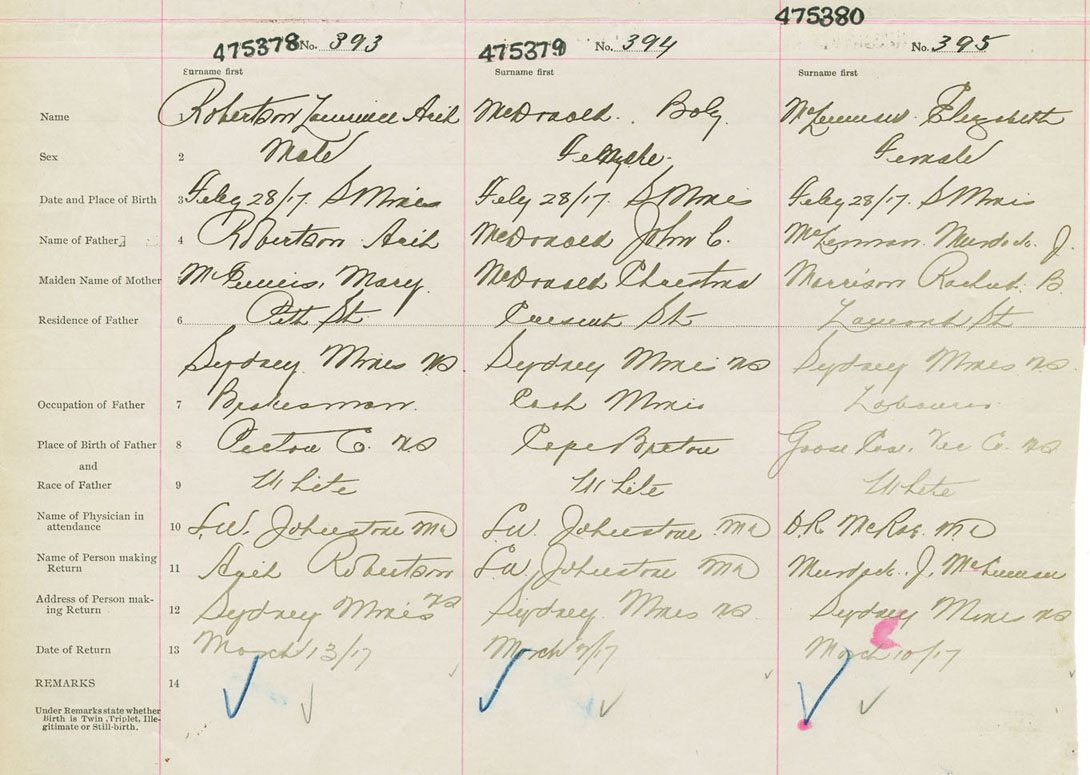 475378 No. 393 475379 No. 394 475380 No. 395
Surname first Surname first Surname first
Name 1 Robertson Arch McDonald McLennan Elizabeth
Sex 2 Male Female Female
Date and Place of Birth 3 Feby 28/17. S Mines Feby 28/17. S Mines Feby 28/17 S Mines
Name of Father 4 Robertson Arch McDonald John C. McLennan Murdock J.
Maiden Name of Mother McGinnis, Mary. McDonald Morrison B.
Residence of Father 6 Pitt St St St
Sydney Mines NS Sydney Mines NS Sydney Mines NS
Occupation of Father 7 Brakesman Mines Labourer
Place of Birth of Father 8 Pictou C. NS Cape Breton Goose Vic Co. NS
and
Race of Father 9 White White White
Name of Physician in
attendance 10 L.W. Johnstone MD L.W. Johnstone MD DR McRae MD
Name of Person making
Return 11 Arch Robertson L.W. Johnstone MD Murdock. J. McLennan
Address of Person mak-
ing Return 12 Sydney Mines NS Sydney Mines NS Sydney Mines NS
Date of Return 13 March 13/17 March /17 March 10/17
REMARKS 14
Under Remarks state whether
Birth is Twin, Triplet, Ille-
gitimate or Still-birth.